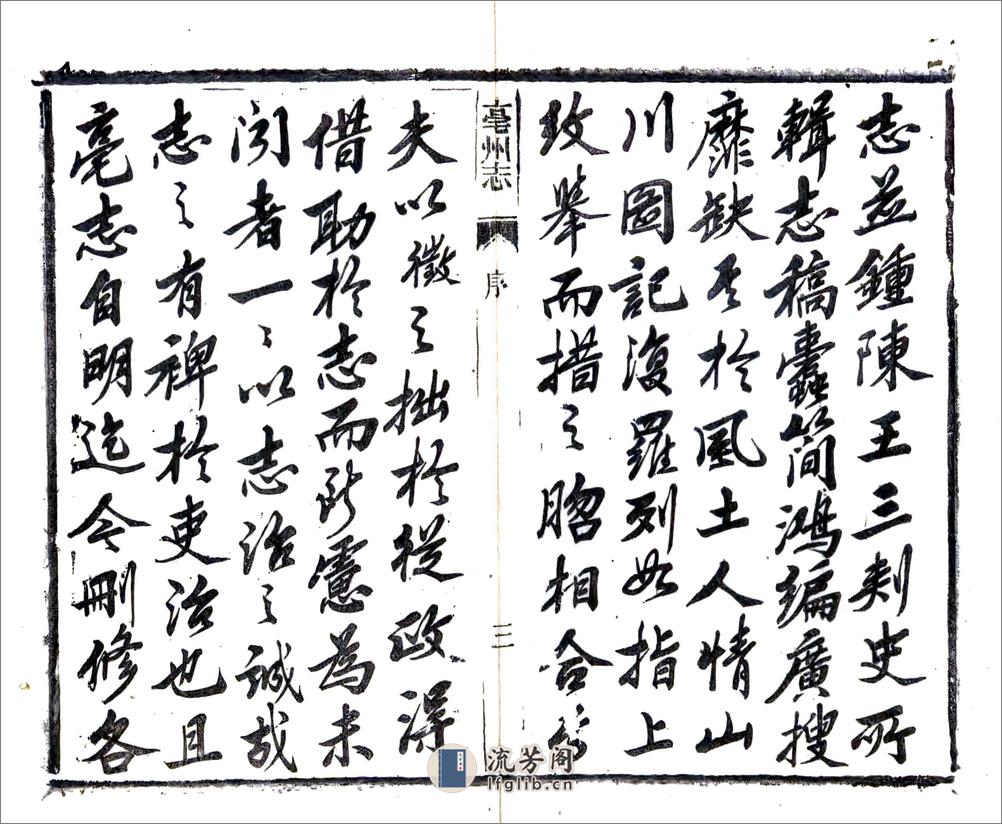 志並鍾陳王三刺史所
輯志稿蠹簡鴻編廣搜
靡缺至於風土人情山
川圖記復羅列如指上
攷举而措之脗相合
亳州志
序
三
夫以徵之拙於從政得
借助於志而所憲為未
闻者一々以志治之誠哉
志之有裨於吏治也且
亳志自明迄今刪修各
流芳阁
lfglib.cn